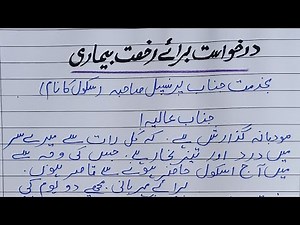 درخواست برائے رخصت بیماری
بخدمت جناب پرنسپل صاحبہ (سکول کا نام)
جناب عالیہ!
مودبانہ گذارش ہے۔ کہ کل رات سے میرے سر
میں درد اور تیز بخار ہے۔ جس کی وجہ سے
میں آج اسکول حاضر ہونے سے قاصر ہوں۔
برائے مہربانی مجھے دو یوم کی